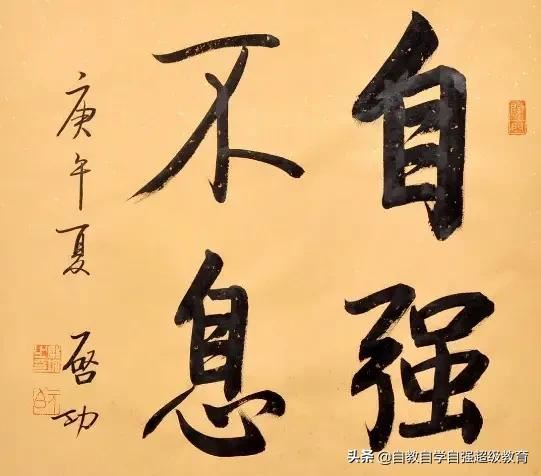 自强
不息
庚午夏 啓功
头条 @自教自学自强超级教育